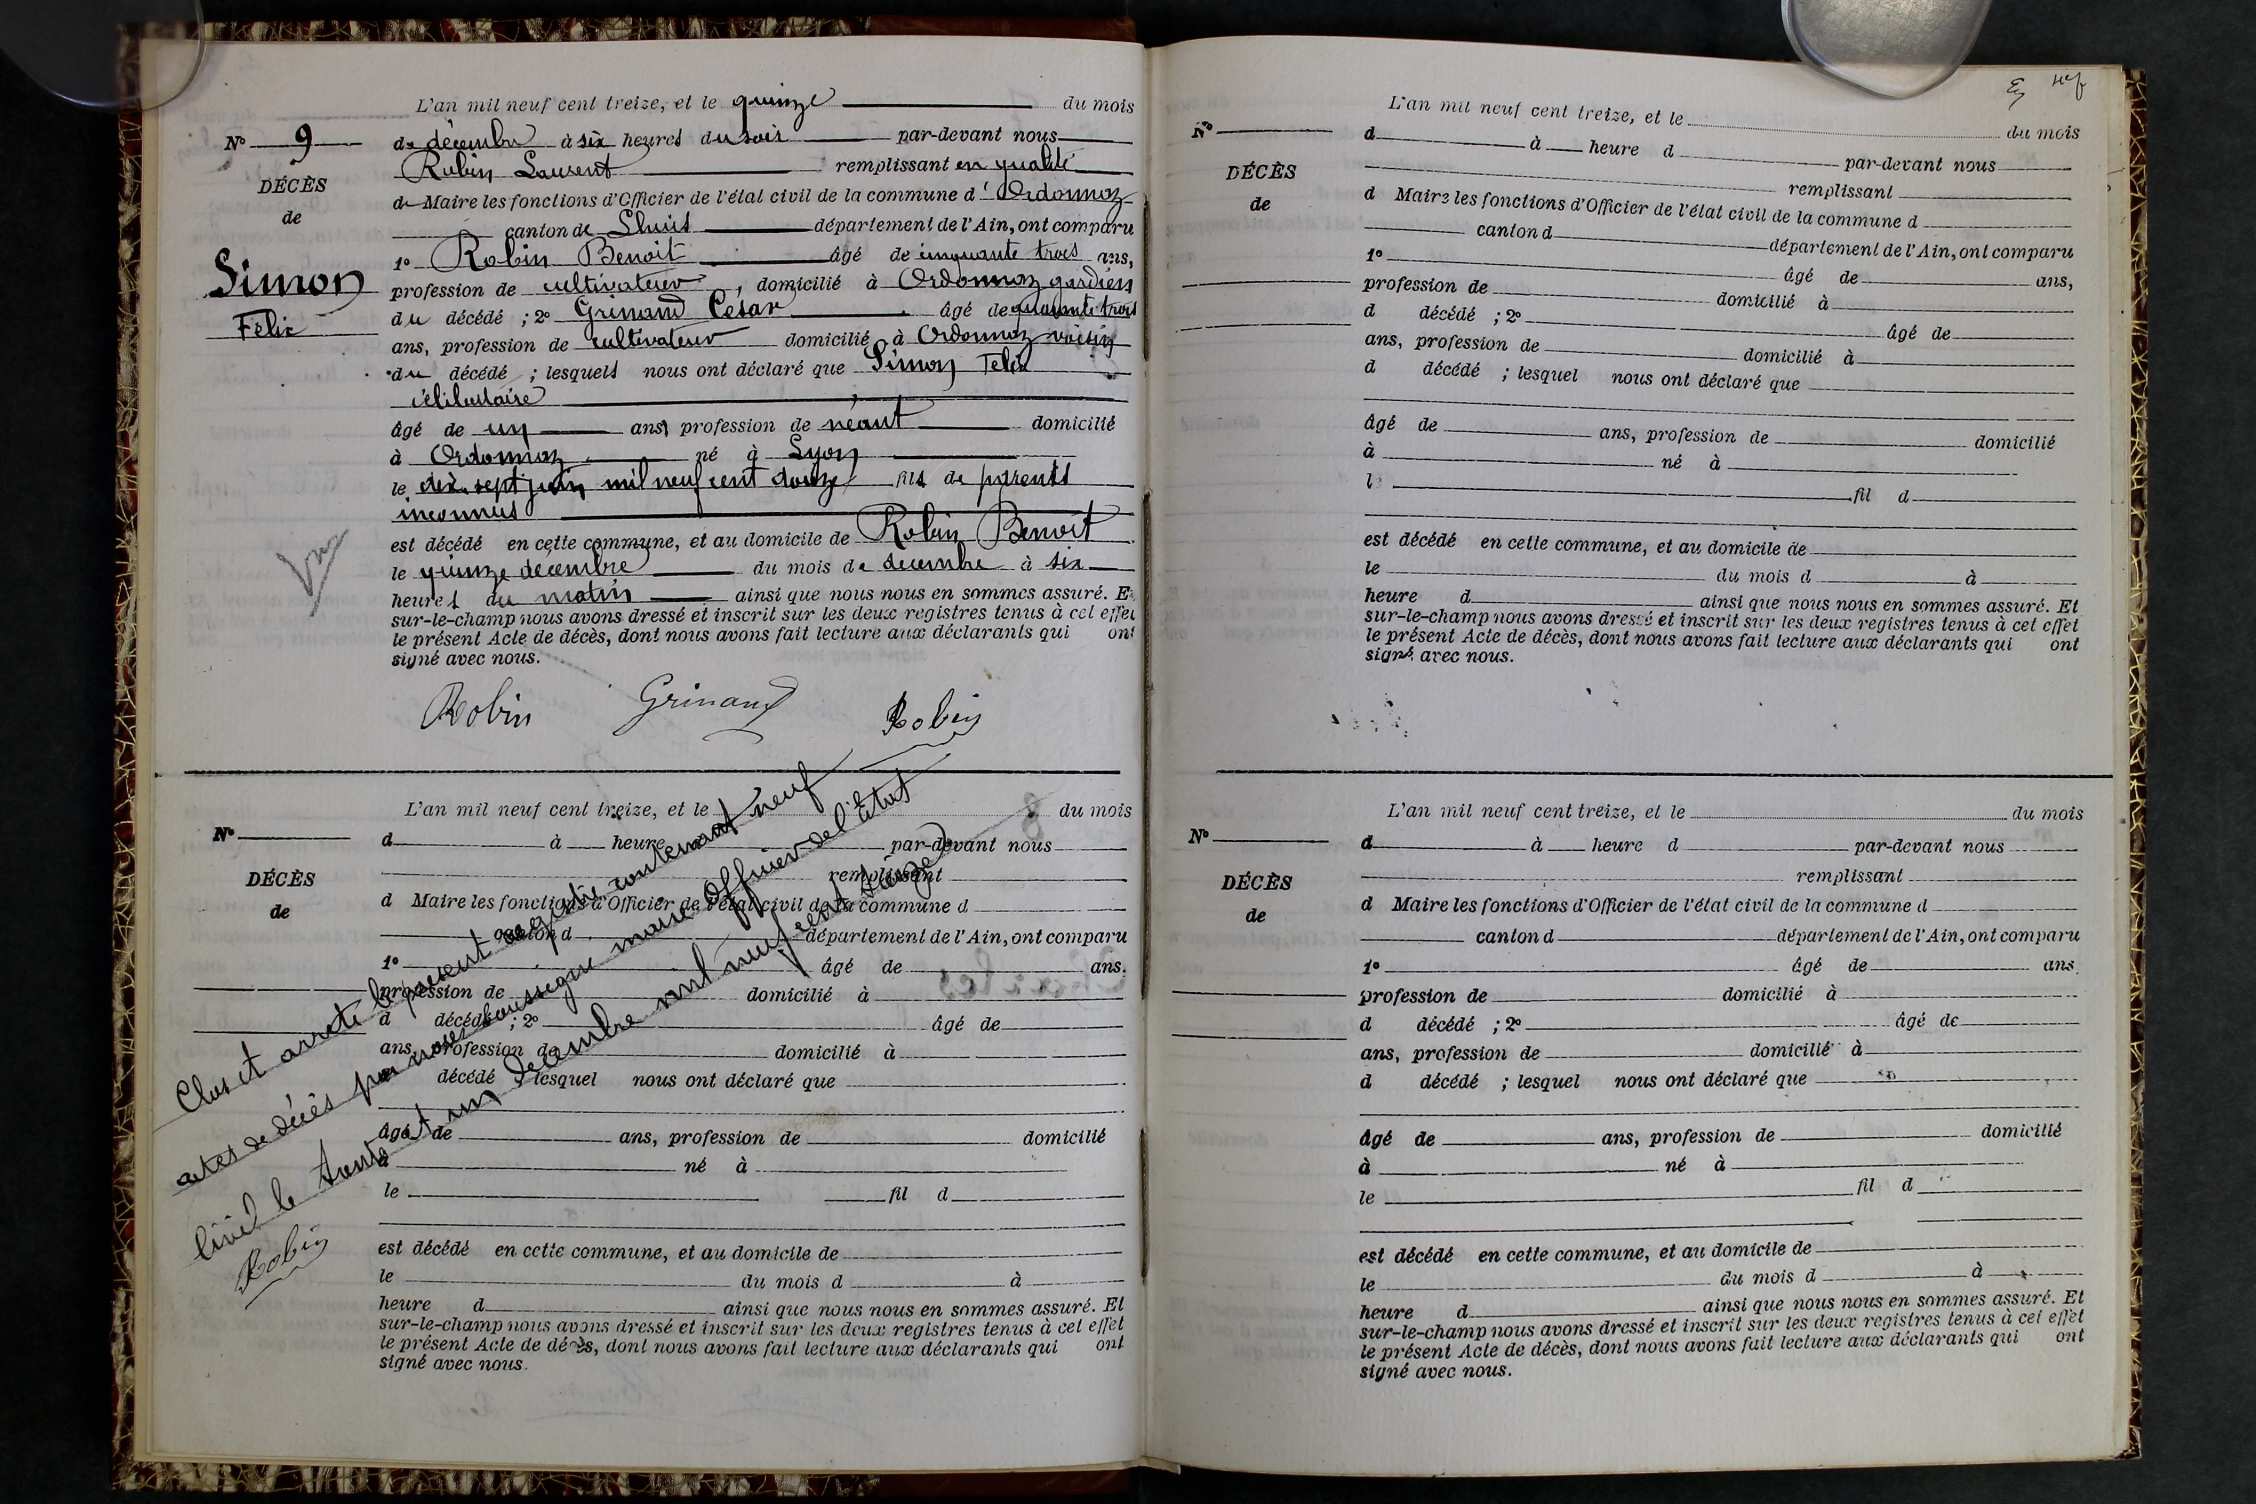 L'an mil neuf cent treize, et le quinze du mois
N° 9
de décembre à six heures du soir par-devant nous
Robin Laurent remplissant en qualité
DÉCÈS
de Maire les fonctions d'Officier de l'état civil de la commune d'Ordonnaz
de
canton de Lhuis département de l'Ain, ont comparu
1° Robin Benoit âgé de cinquante trois ans,
Simon
profession de cultivateur, domicilié à Ordonnaz gardien
Félix
du décédé ; 2° Grinand César âgé de quarante trois
ans, profession de cultivateur domicilié à Ordonnaz voisin
du décédé ; lesquels nous ont déclaré que Simon Felix
célibataire
âgé de un ans profession de néant domicilié
à Ordonnaz né à Lyon
le dix sept juin mil neuf cent douze fils de parents
inconnus
est décédé en cette commune, et au domicile de Robin Benoit
le quinze décembre du mois de decembre à six
heures du matin ainsi que nous nous en sommes assuré. Et
sur-le-champ nous avons dressé et inscrit sur les deux registres tenus à cet effet
le présent Acte de décès, dont nous avons fait lecture aux déclarants qui ont
signé avec nous.
Robin Grinand Robin
L'an mil neuf cent treize, et le du mois
N°
d à heure par-devant nous
remplissant
DÉCÈS
d Maire les fonctions d'Officier de l'état civil de la commune d
de
canton d département de l'Ain, ont comparu
1° âgé de ans.
profession de domicilié à
d décédé ; 2° âgé de
ans, profession de domicilié à
décédé ; lesquel nous ont déclaré que
âgé de ans, profession de domicilié
à né à
le fil d
est décédé en cette commune, et au domicile de
le du mois d à
heure d ainsi que nous nous en sommes assuré. Et
sur-le-champ nous avons dressé et inscrit sur les deux registres tenus à cet effet
le présent Acte de décès, dont nous avons fait lecture aux déclarants qui ont
signé avec nous.
Clos et arreté le présent registre contenant neuf
actes de décès par nous soussigné maire Officier de l'État
Civil le trente et un Decembre mil neuf cent treize
Robin
L'an mil neuf cent treize, et le du mois
N°
d à heure d par-devant nous
remplissant
DÉCÈS
d Maire les fonctions d'Officier de l'état civil de la commune d
de
canton d département de l'Ain, ont comparu
1° âgé de ans,
profession de domicilié à
d décédé ; 2° âgé de
ans, profession de domicilié à
d décédé ; lesquel nous ont déclaré que
âgé de ans, profession de domicilié
à né à
l fil d
est décédé en cette commune, et au domicile de
le du mois d à
heure d ainsi que nous nous en sommes assuré. Et
sur-le-champ nous avons dressé et inscrit sur les deux registres tenus à cet effet
le présent Acte de décès, dont nous avons fait lecture aux déclarants qui ont
signé avec nous.
L'an mil neuf cent treize, et le du mois
N°
d à heure d par-devant nous
remplissant
DÉCÈS
d Maire les fonctions d'Officier de l'état civil de la commune d
de
canton d département de l'Ain, ont comparu
1° âgé de ans
profession de domicilié à
d décédé ; 2° âgé de
ans, profession de domicilié à
d décédé ; lesquel nous ont déclaré que
âgé de ans, profession de domicilié
à né à
le fil d
est décédé en cette commune, et au domicile de
le du mois d à
heure d ainsi que nous nous en sommes assuré. Et
sur-le-champ nous avons dressé et inscrit sur les deux registres tenus à cet effet
le présent Acte de décès, dont nous avons fait lecture aux déclarants qui ont
signé avec nous.